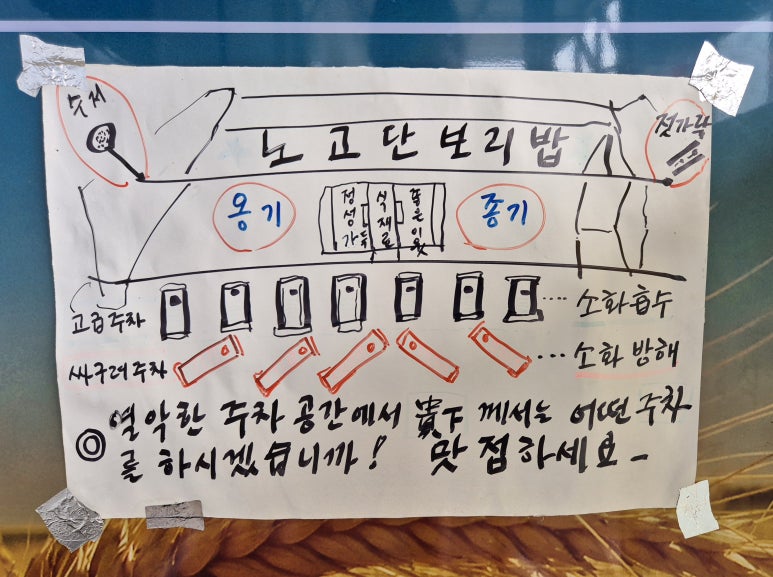 수저
젓가락
노고단보리밥
옹기
정성가득
식재료
좋은이웃
종기
고급주차
소화흡수
싸구려주차
소화방해
◎ 열악한 주차 공간에서 貴下께서는 어떤주차
를 하시겠습니까! 맛 점하세요-